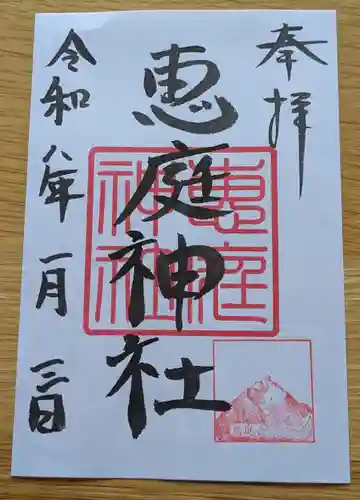 奉拝
恵庭神社
恵庭
神社
令和八年一月三日